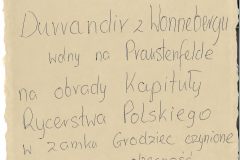 Durrandir z Wonnebergu
wolny na Praustenfelde
na obrady Kapituły
Rycerstwa Polskiego
w zamku Grodziec czynione
obecność